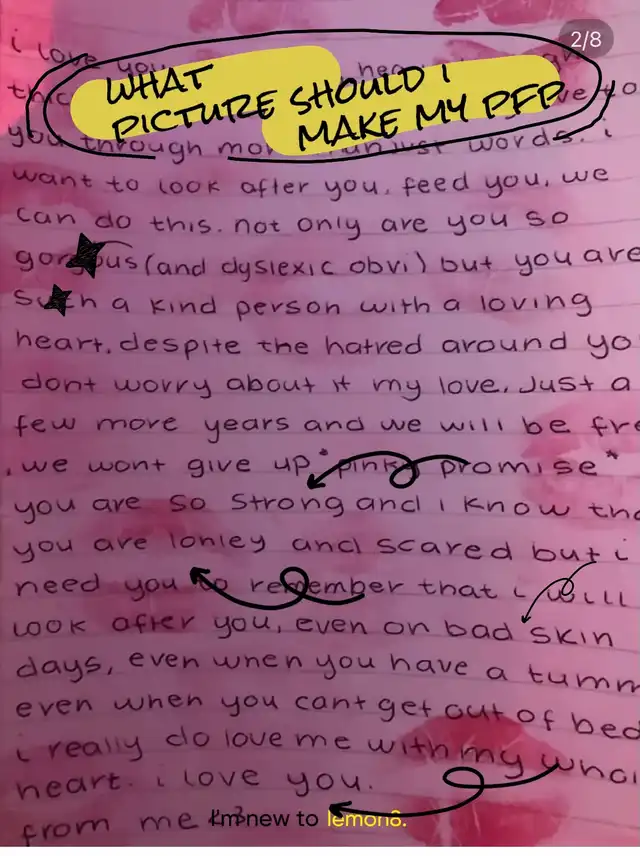 2/8
WHAT
PICTURE SHOULD I
MAKE MY PFP
i love you
to
you through words. i
want to look after you, feed you, we
can do this. not only are you so
(and dyslexic obvi) but you are
a kind person with a loving
heart, despite the hatred around yo
dont worry about it my love. Just a
few more years and we will be fre
, we wont give up *pinky promise*
you are so strong and i know tha
you are lonley and scared but i
need you to remember that i will
look after you, even on bad skin
days, even when you have a tumm
even when you cant get out of bed
i really do love me with my whol
heart. i love you.
from me
I'm new to lemon8.